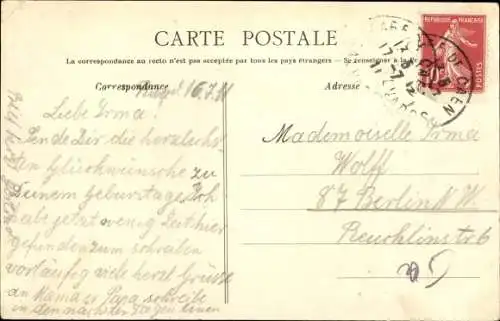 CARTE POSTALE
La correspondance au recto n'est pas acceptée par tous les pays étrangers — Se renseigner à la
Correspondance
Adresse
REPUBLIQUE FRANÇAISE
POSTES
16.7.11
Liebe Irma!
Sende Dir die herzlichs-
ten Glückwünsche zu
Deinem Geburtstage. Ich
habe jetzt wenig Zeit hier
gefunden zum schreiben
vorläufig viele herzl Grüsse
an Mama & Papa schreibe
in den nächsten Tagen einen
Mademoiselle Irma
Wolff
87 Berlin N.W.
Reuchlinstr 6